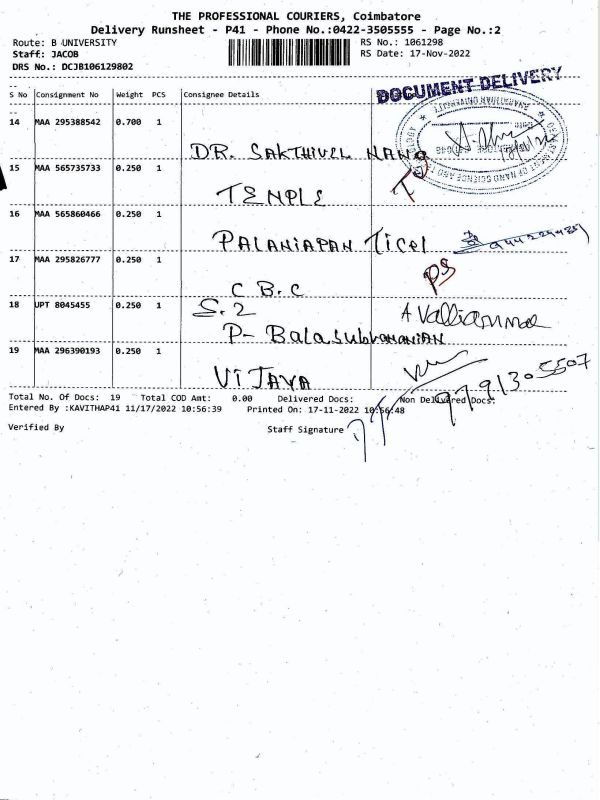 THE PROFESSIONAL COURIERS, Coimbatore
Delivery Runsheet - P41 - Phone No.:0422-3505555 - Page No.:2
Route: B UNIVERSITY
RS No.: 1061298
Staff: JACOB
RS Date: 17-Nov-2022
DRS No.: DCJB106129802
DOCUMENT DELIVERY
S No Consignment No Weight PCS Consignee Details
14 MAA 295388542 0.700 1
DR. SAKTHIVEL NANO
15 MAA 565735733 0.250 1
TEMPLE
16 MAA 565860466 0.250 1
PALANIAPAN Ticel
17 MAA 295826777 0.250 1
C B.C
PS
18 UPT 8045455 0.250 1
S.2
P- Balasubramanian
A Valliammal
19 MAA 296390193 0.250 1
VIJAYA
9791305507
Total No. Of Docs: 19 Total COD Amt: 0.00 Delivered Docs: Non Delivered Docs:
Entered By :KAVITHAP41 11/17/2022 10:56:39 Printed On: 17-11-2022 10:56:48
Verified By
Staff Signature